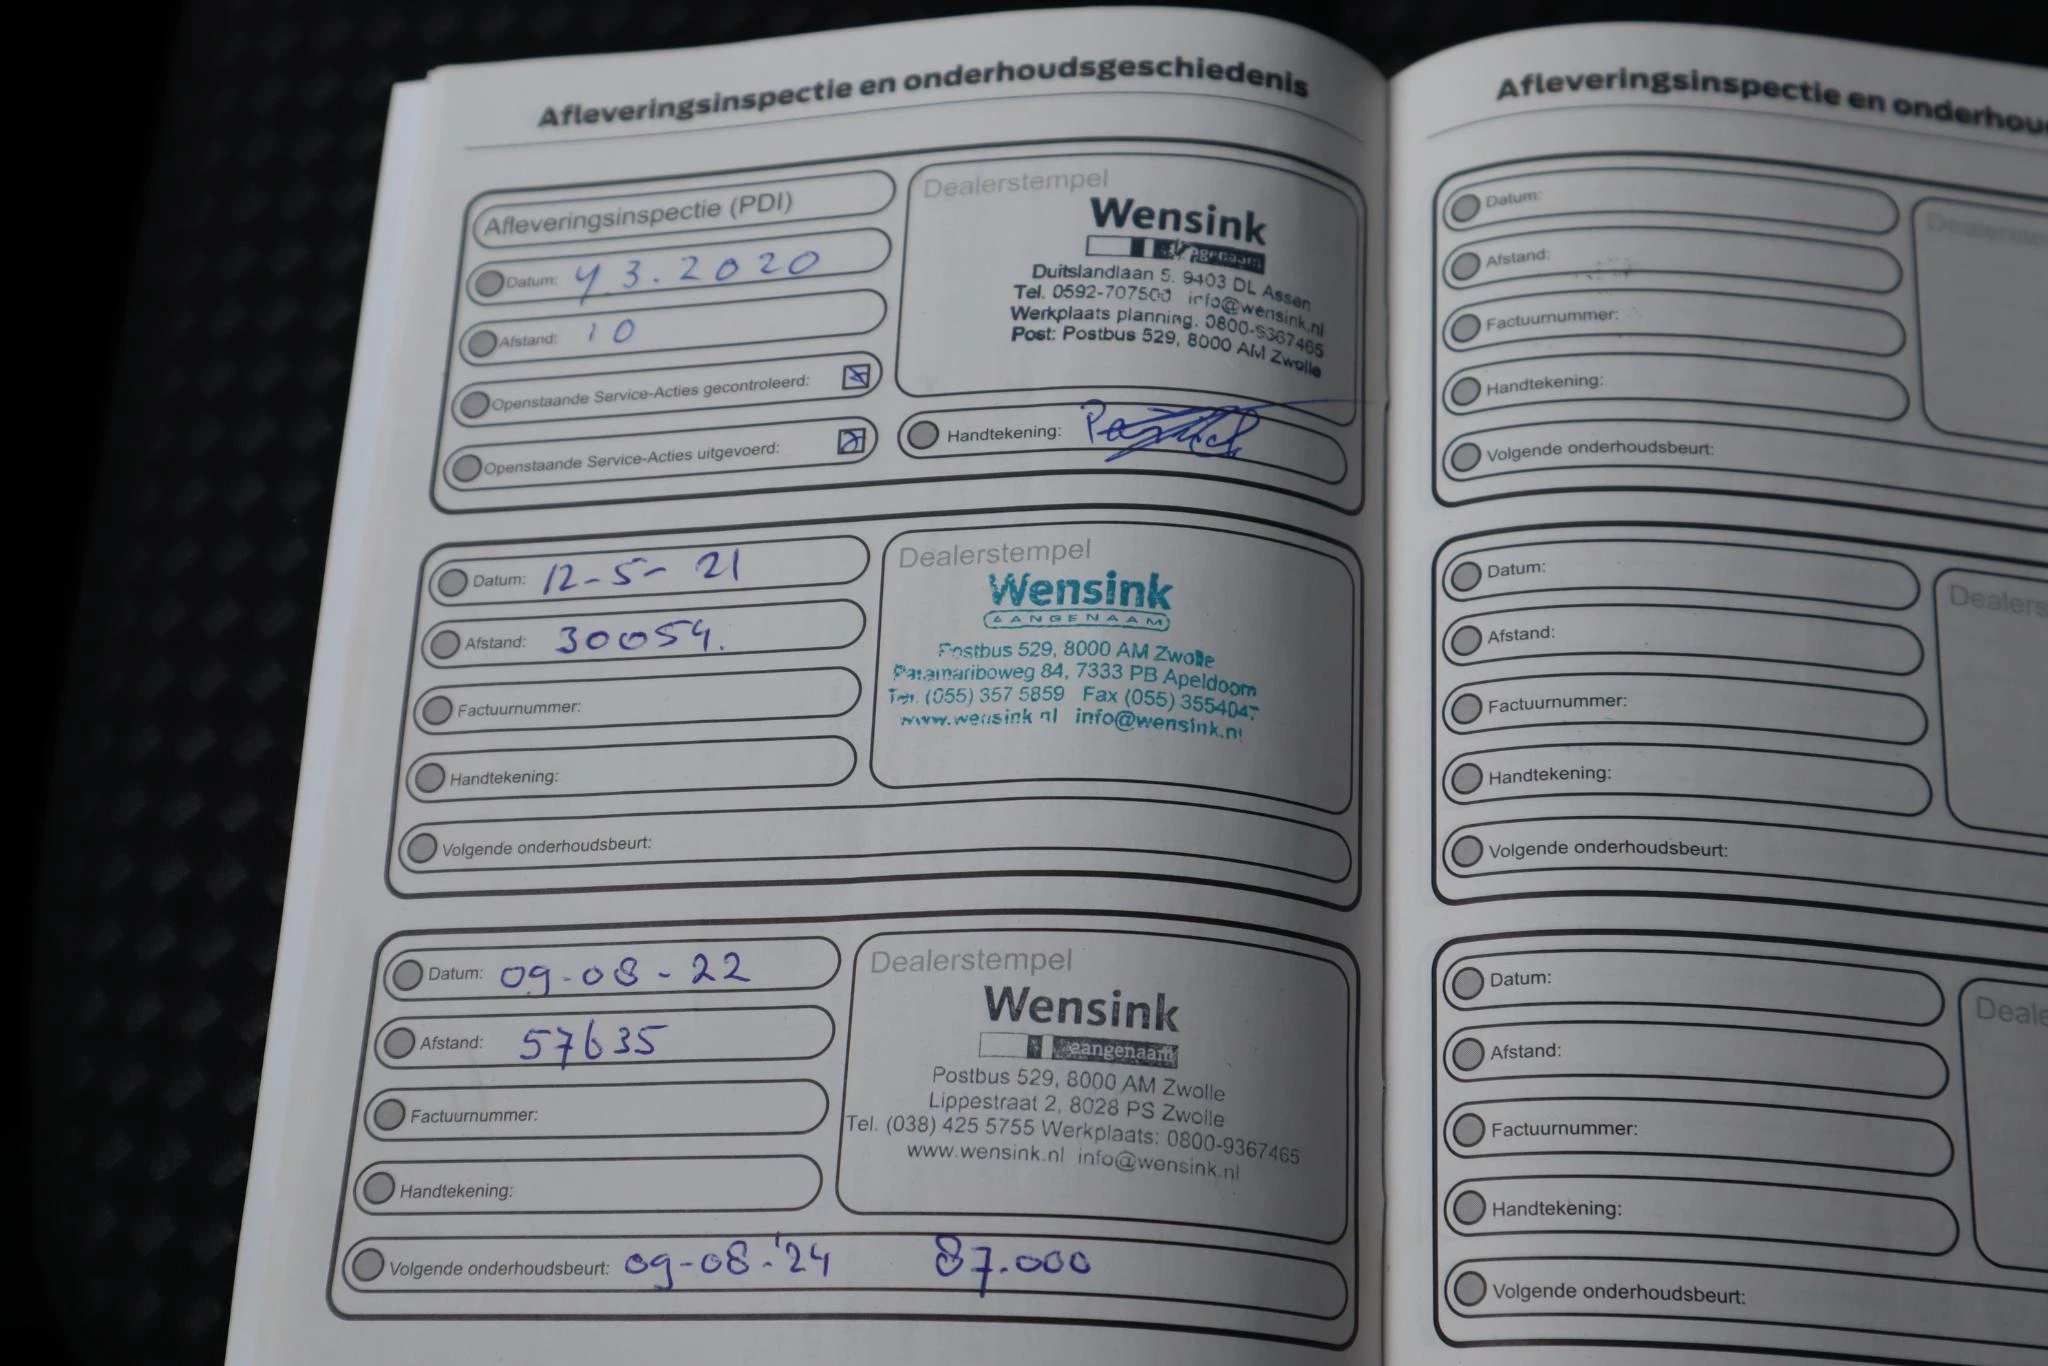 Afleveringsinspectie en onderhoudsgeschiedenis
Afleveringsinspectie (PDI)
Datum: 4 3.2020
Afstand: 10
Openstaande Service-Acties gecontroleerd:
Openstaande Service-Acties uitgevoerd:
Dealerstempel
Wensink
Duitslandlaan 5, 9403 DL Assen
Tel. 0592-707500 info@wensink.nl
Werkplaats planning. 0800-9367465
Post: Postbus 529, 8000 AM Zwolle
Handtekening:
Datum: 12-5-21
Afstand: 30054.
Factuurnummer:
Handtekening:
Volgende onderhoudsbeurt:
Dealerstempel
Wensink
AANGENAAM
Postbus 529, 8000 AM Zwolle
Paramariboweg 84, 7333 PB Apeldoorn
Tel. (055) 357 5859 Fax (055) 3554047
www.wensink.nl info@wensink.nl
Datum: 09-08-22
Afstand: 57635
Factuurnummer:
Handtekening:
Volgende onderhoudsbeurt: 09-08-'24 87.000
Dealerstempel
Wensink
aangenaam
Postbus 529, 8000 AM Zwolle
Lippestraat 2, 8028 PS Zwolle
Tel. (038) 425 5755 Werkplaats: 0800-9367465
www.wensink.nl info@wensink.nl
Afleveringsinspectie en onderhou
Datum:
Afstand:
Factuurnummer:
Handtekening:
Volgende onderhoudsbeurt:
Dealerste
Datum:
Afstand:
Factuurnummer:
Handtekening:
Volgende onderhoudsbeurt:
Dealers
Datum:
Afstand:
Factuurnummer:
Handtekening:
Volgende onderhoudsbeurt:
Deale